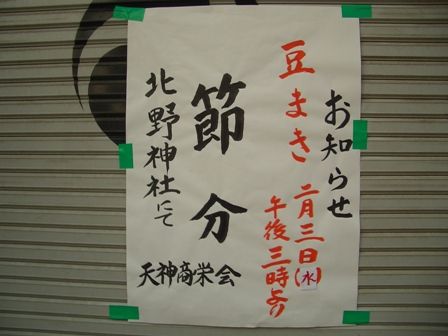 お知らせ
豆まき 二月三日(水)
午後三時より
節分
北野神社にて
天神商栄会